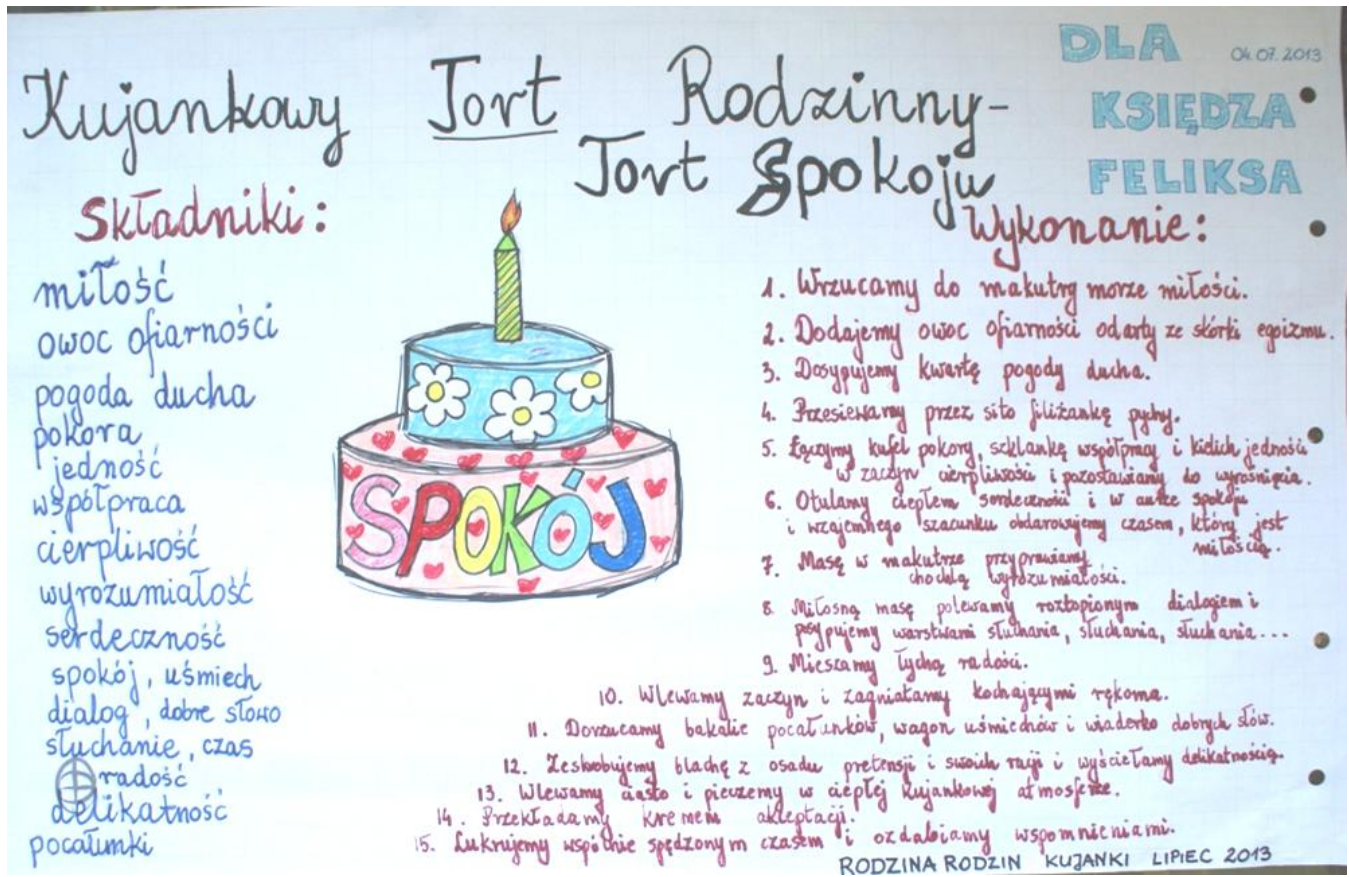 DLA 04.07.2013
KSIĘDZA
FELIKSA
Kujankowy Tort Rodzinny-
Tort Spokoju
Składniki:
miłość
owoc ofiarności
pogoda ducha
pokora
jedność
współpraca
cierpliwość
wyrozumiałość
serdeczność
spokój, uśmiech
dialog, dobre słowo
słuchanie, czas
radość
delikatność
pocałunki
SPOKÓJ
Wykonanie:
1. Wrzucamy do makutry morze miłości.
2. Dodajemy owoc ofiarności odarty ze skórki egoizmu.
3. Dosypujemy kwartę pogody ducha.
4. Przesiewamy przez sito filiżankę pychy.
5. Łączymy kufel pokory, szklankę współpracy i kielich jedność
w zaczyn cierpliwości i pozostawiamy do wyrośnięcia.
6. Otulamy ciepłem serdeczności i w aurze spokoju
i wzajemnego szacunku obdarowujemy czasem, który jest
miłością.
7. Masę w makutrze przyprawiamy
chochlą wyrozumiałości.
8. Miłosną masę polewamy roztopionym dialogiem i
posypujemy warstwami słuchania, słuchania, słuchania...
9. Mieszamy łychą radości.
10. Wlewamy zaczyn i zagniatamy kochającymi rękoma.
11. Dorzucamy bakalie pocałunków, wagon uśmiechów i wiaderko dobrych słów.
12. Zeskrobujemy blachę z osadu pretensji i swoich racji i wyściełamy delikatnością.
13. Wlewamy ciasto i pieczemy w ciepłej Kujankowej atmosferze.
14. Przekładamy kremem akceptacji.
15. Lukrujemy wspólnie spędzonym czasem i ozdabiamy wspomnieniami.
RODZINA RODZIN KUJANKI LIPIEC 2013